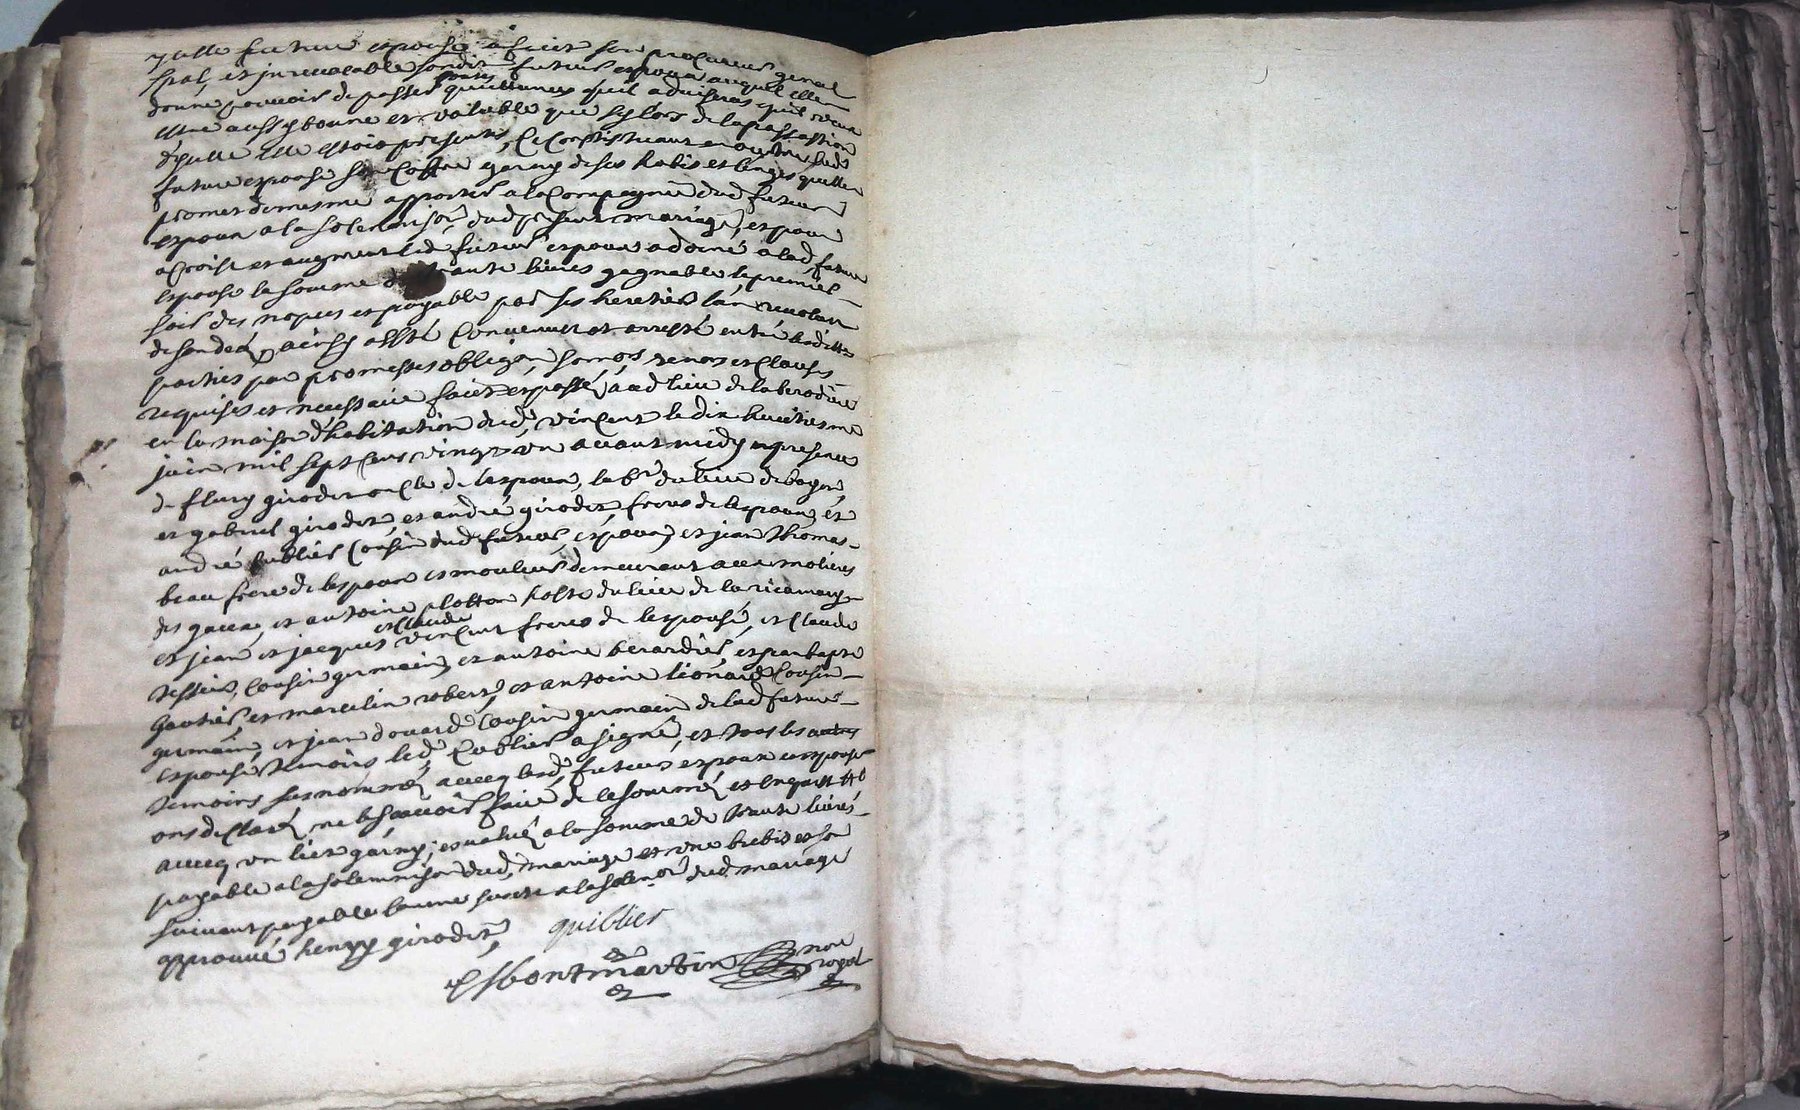 ylle future espouse a faict son procureur genal
spal, et jnrevocable sondit futeur espoux auquel elle
donne pouvoir de passer toutes quittances quil advisera quil veut
estre aussy bonne et valable que sy lors de la passassion
dyselle elle estoit presente, Ce Constituant en outre lad
future espouse son Coffre garny de ses habis et linges quelle
promet de mesme apporter a la Compagnie dud futeur
espoux a la solemnison dud present mariage, et pour
acroist et augment led futeur espoux a donné a lad future
espouse la somme de ante livres gagnable le premier
soir des nopces et payable par ses heretiers lan revolu
de son deces, ainsy a esté Convenu et arresté entre lesdittes
parties par promesses obligaon, somons, renons et Clauses
requises et necessaire faict et passé aud lieu de la berodiere
en la maison d'habitation dud vincent le dix huictiesme
juin mil sept cens vingt un avant midy en presence
de fleury girodet oncle de lespoux, la br du lieu de
et gabriel girodet, et andré girodet, freres de lespoux, et
andré Cublier Cousin dud futeur, espoux, et jean thomas
beau frere de lespoux et mouleur demeurant aux molieres
des gaux, et antoine plotton hoste du lieu de la ricamary
et jean et jacques et Claude vincent freres de lespouse, et Claude
tessier, Cousin germain, et antoine berardier, et jean bapte
gautier, et marcelin robert, et antoine lionard Cousin
germain, et jean douard Cousin germain de lad future
espouse temoins led Cublier a signé, et tous les autres
temoins susnommés avecq lesd futeurs espoux et espouse
ont declaré ne le sçavoir faire de ce sommés et enquis
avecq un lict garny, esvalué a la somme de trante livres
payable a la solemnison dud mariage et une brebis et son
suivant payable comme susdit a la solenon dud mariage
approuvé henry girodet, quiblier
Esbontmartin nore
royal